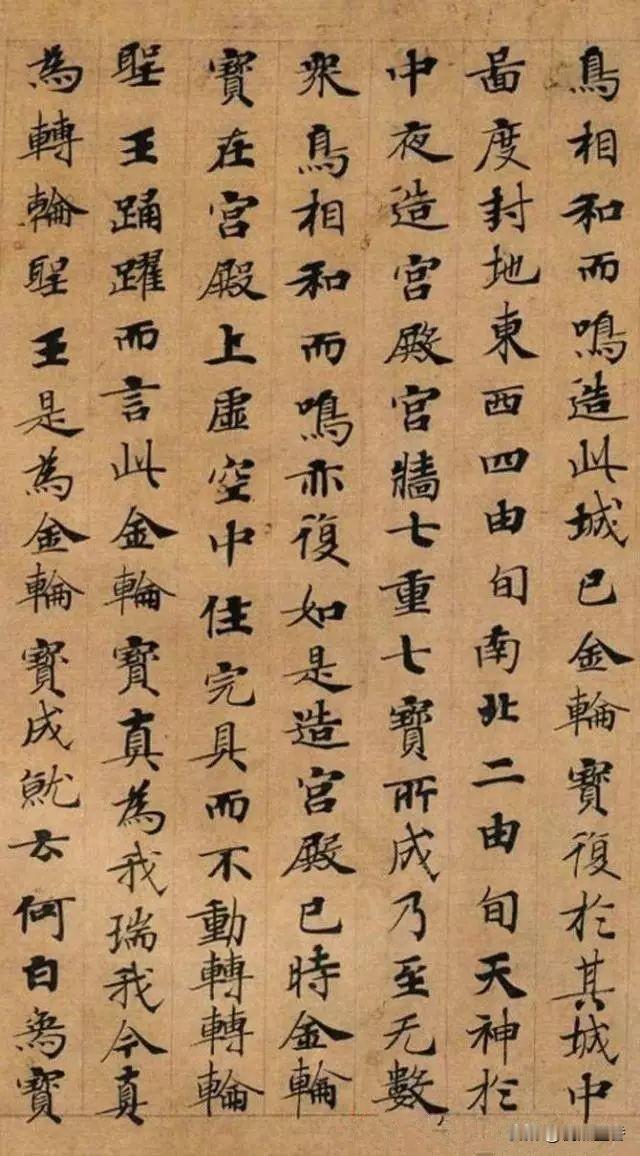 鳥相和而鳴造此城已金輪寶復於其城中
啚度封地東西四由旬南北二由旬天神於
中夜造宮殿宮牆七重七寶所成乃至无數
衆鳥相和而鳴亦復如是造宮殿已時金輪
寶在宮殿上虛空中住完具而不動轉轉輪
聖王踊躍而言此金輪寶真為我瑞我今真
為轉輪聖王是為金輪寶成就云何白為寶